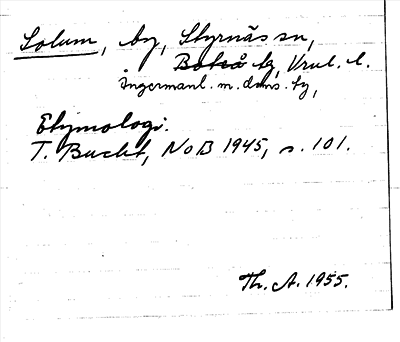 Solum, by, Styrnäs sn,
Boteå tg, Vnl. l.
Ångermanl. m. doms. tg,
Etymologi.
T. Bucht, NoB 1945, s. 101.
Th. A. 1955.